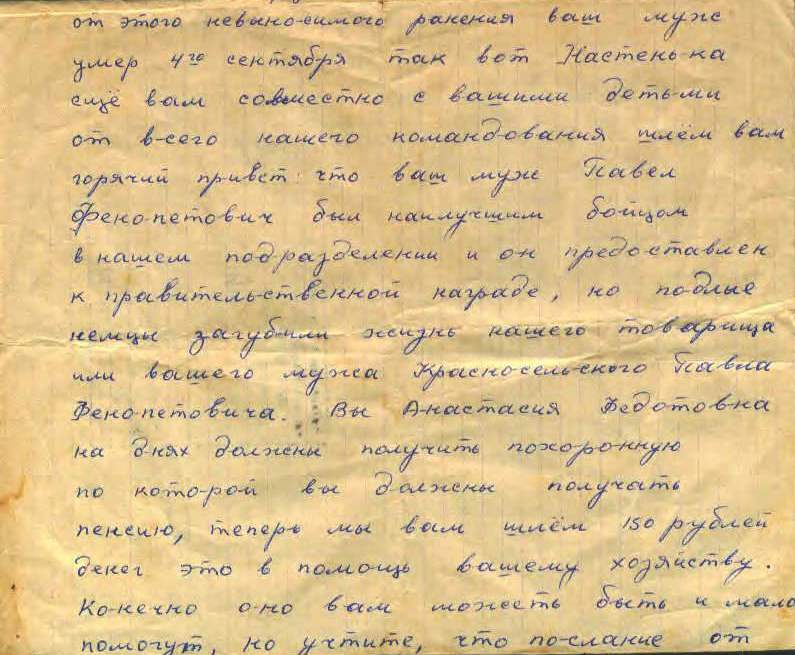 от этого невыносимого ранения ваш муж
умер 4го сентября так вот Настенька
ещё вам совместно с вашими детьми
от всего нашего командования шлём вам
горячий привет что ваш муж Павел
Фенопетович был наилучшим бойцом
в нашем подразделении и он предоставлен
к правительственной награде, но подлые
немцы загубили жизнь нашего товарища
или вашего мужа Красносельского Павла
Фенопетовича. Вы Анастасия Федотовна
на днях должны получить похоронную
по которой вы должны получать
пенсию, теперь мы вам шлём 150 рублей
денег это в помощь вашему хозяйству.
Конечно оно вамможеть быть и мало
помогут, но учтите, что послание от